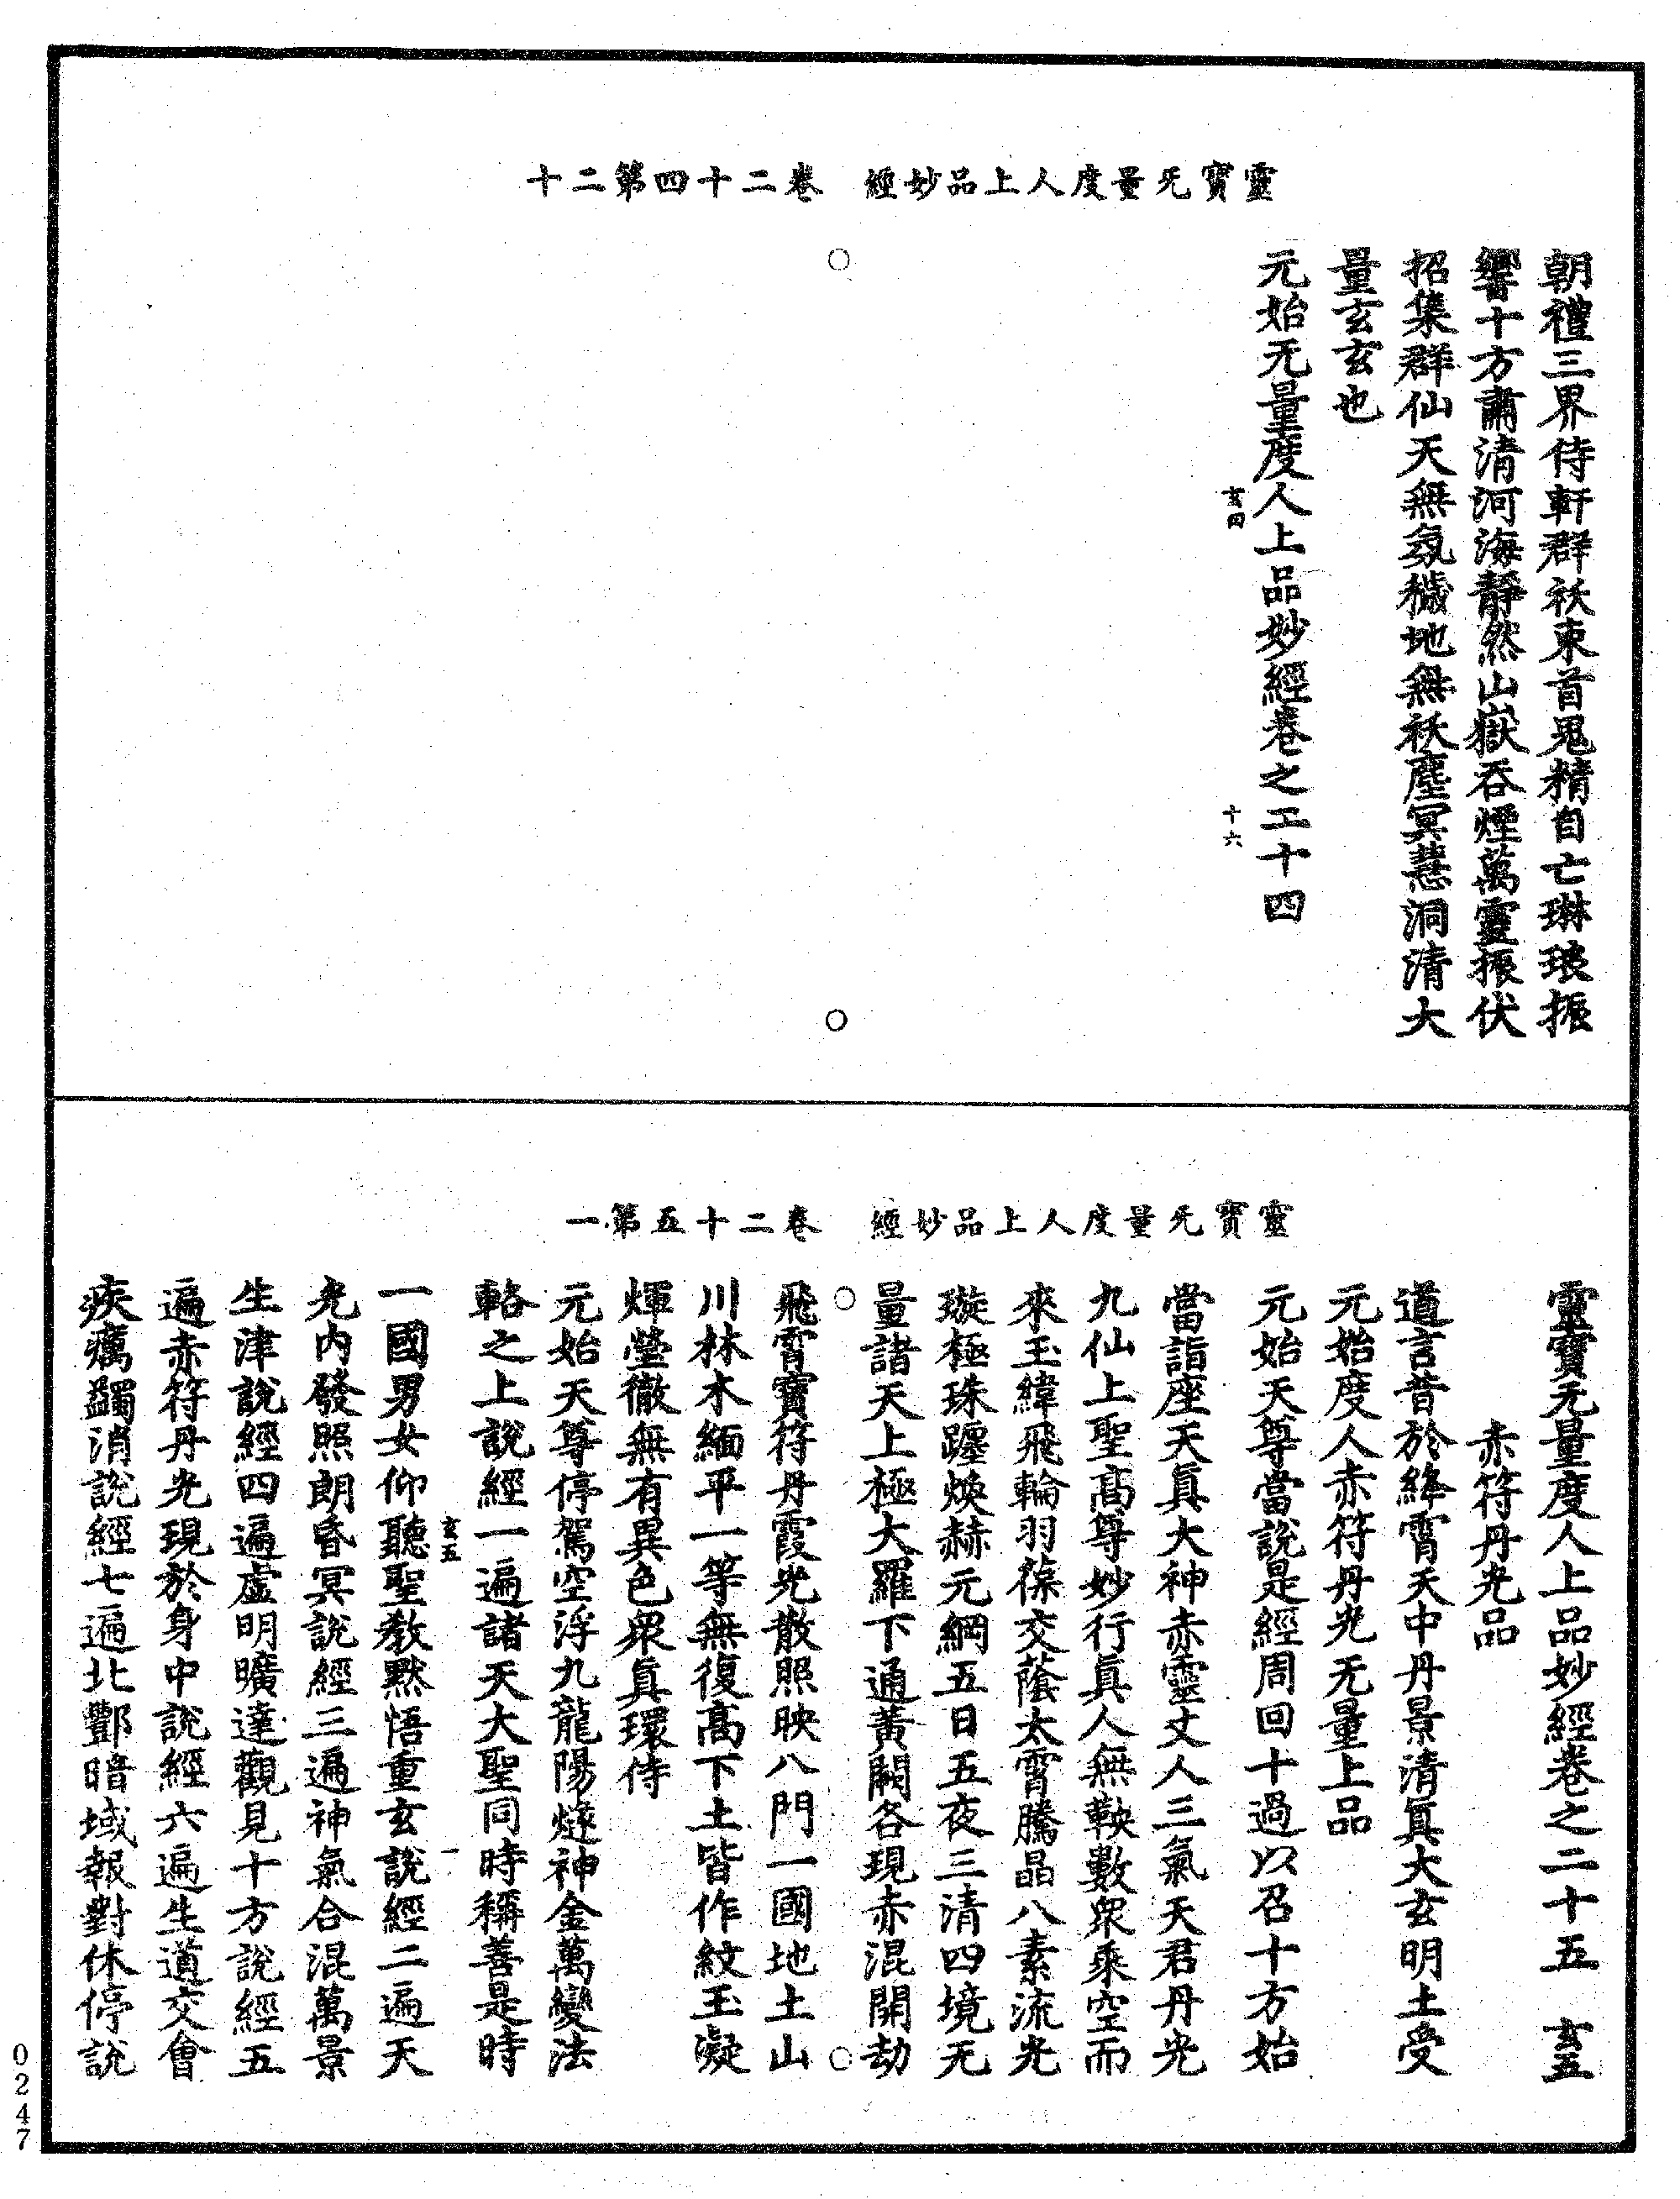 靈寶无量度人上品妙經　卷二十四第二十
朝禮三界侍軒群袄束首鬼精自亡琳琅振
響十方肅清河海靜然山嶽吞煙萬靈振伏
招集群仙天無氛穢地無袄塵冥慧洞清大
量玄玄也
元始无量度人上品妙經卷之二十四
玄四
十六
靈寶无量度人上品妙經　卷二十五第一
靈寶无量度人上品妙經卷之二十五　玄五
赤符丹光品
道言昔於絳霄天中丹景清真大玄明土受
元始度人赤符丹光无量上品
元始天尊當說是經周回十過以召十方始
當詣座天真大神赤靈丈人三氣天君丹光
九仙上聖高尊妙行真人無鞅數眾乘空而
來玉緯飛輪羽葆交蔭太霄騰晶八素流光
璇極珠躔煥赫元綱五日五夜三清四境无
量諸天上極大羅下通黃闕各現赤混開劫
飛霄寶符丹霞光散照映八門一國地土山
川林木緬平一等無復高下土皆作紋玉凝
煇瑩徹無有異色眾真環侍
元始天尊停駕空浮九龍陽燧神金萬變法
輅之上說經一遍諸天大聖同時稱善是時
玄五
一
一國男女仰聽聖教默悟重玄說經二遍天
光內發照朗昏冥說經三遍神氣合混萬景
生津說經四遍虛明曠達觀見十方說經五
遍赤符丹光現於身中說經六遍生道交會
疾癘蠲消說經七遍北酆暗域報對休停說
0247